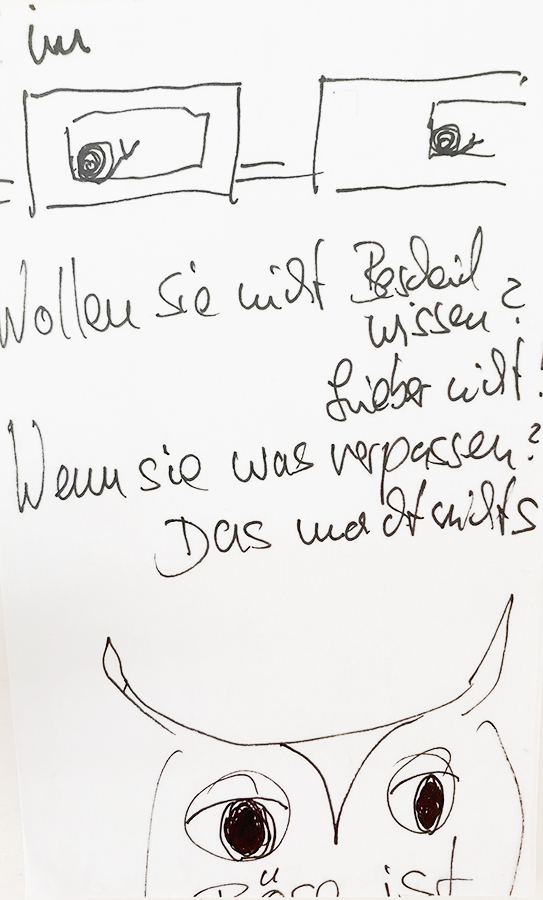 im
Wollen Sie nicht Bescheid
wissen?
Lieber nicht!
Wenn sie was verpassen?
Das macht nichts
ist